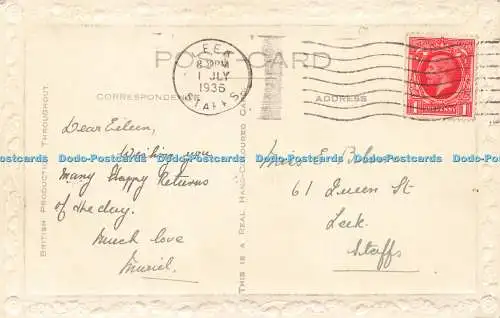 POST-CARD
LEEK
8 PM
1 JLY
1936
STAFFS
CORRESPONDENCE
ADDRESS
BRITISH PRODUCTION THROUGHOUT
THIS IS A REAL HAND-COLOURED
1 1
Dear Eileen,
Wishing you
Many Happy Returns
of the day.
Much love
Muriel.
Miss E.
61 Queen St
Leek.
Staffs
Dodo-Postcards Dodo-Postcards Dodo-Postcards Dodo-Postcards Dodo-Postcards
Dodo-Postcards Dodo-Postcards Dodo-Postcards Dodo-Postcards Dodo-Postcards